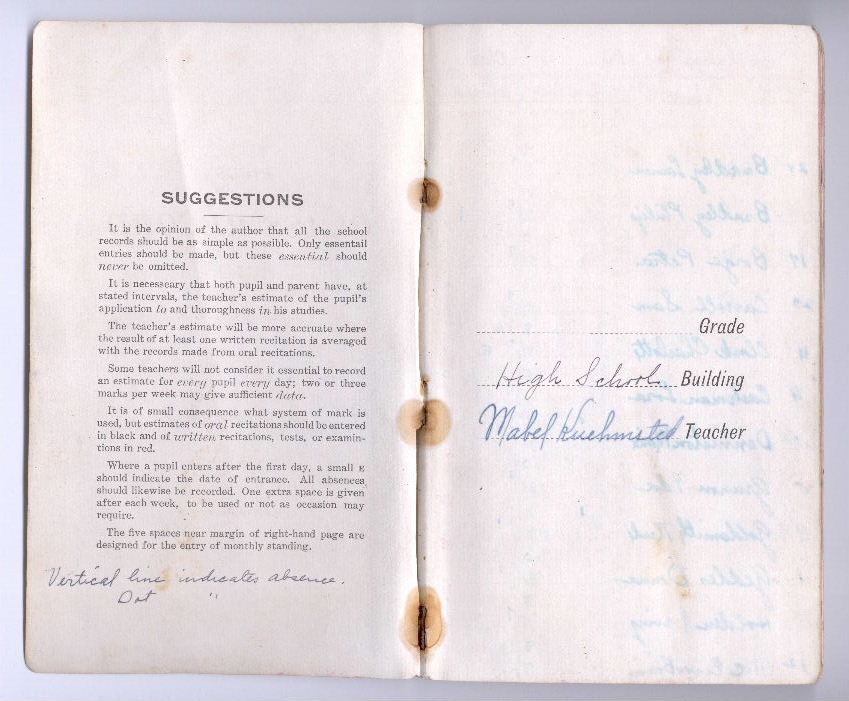 SUGGESTIONS
It is the opinion of the author that all the school
records should be as simple as possible. Only essentail
entries should be made, but these essential should
never be omitted.
It is necessary that both pupil and parent have, at
stated intervals, the teacher's estimate of the pupil's
application to and thoroughness in his studies.
The teacher's estimate will be more accruate where
the result of at least one written recitation is averaged
with the records made from oral recitations.
Some teachers will not consider it essential to record
an estimate for every pupil every day; two or three
marks per week may give sufficient data.
It is of small consequence what system of mark is
used, but estimates of oral recitations should be entered
in black and of written recitations, tests, or examin-
tions in red.
Where a pupil enters after the first day, a small E
should indicate the date of entrance. All absences
should likewise be recorded. One extra space is given
after each week, to be used or not as occasion may
require.
The five spaces near margin of right-hand page are
designed for the entry of monthly standing.
Vertical line indicates absence.
Dot "
Grade
High School Building
Mabel Kuehmsted Teacher